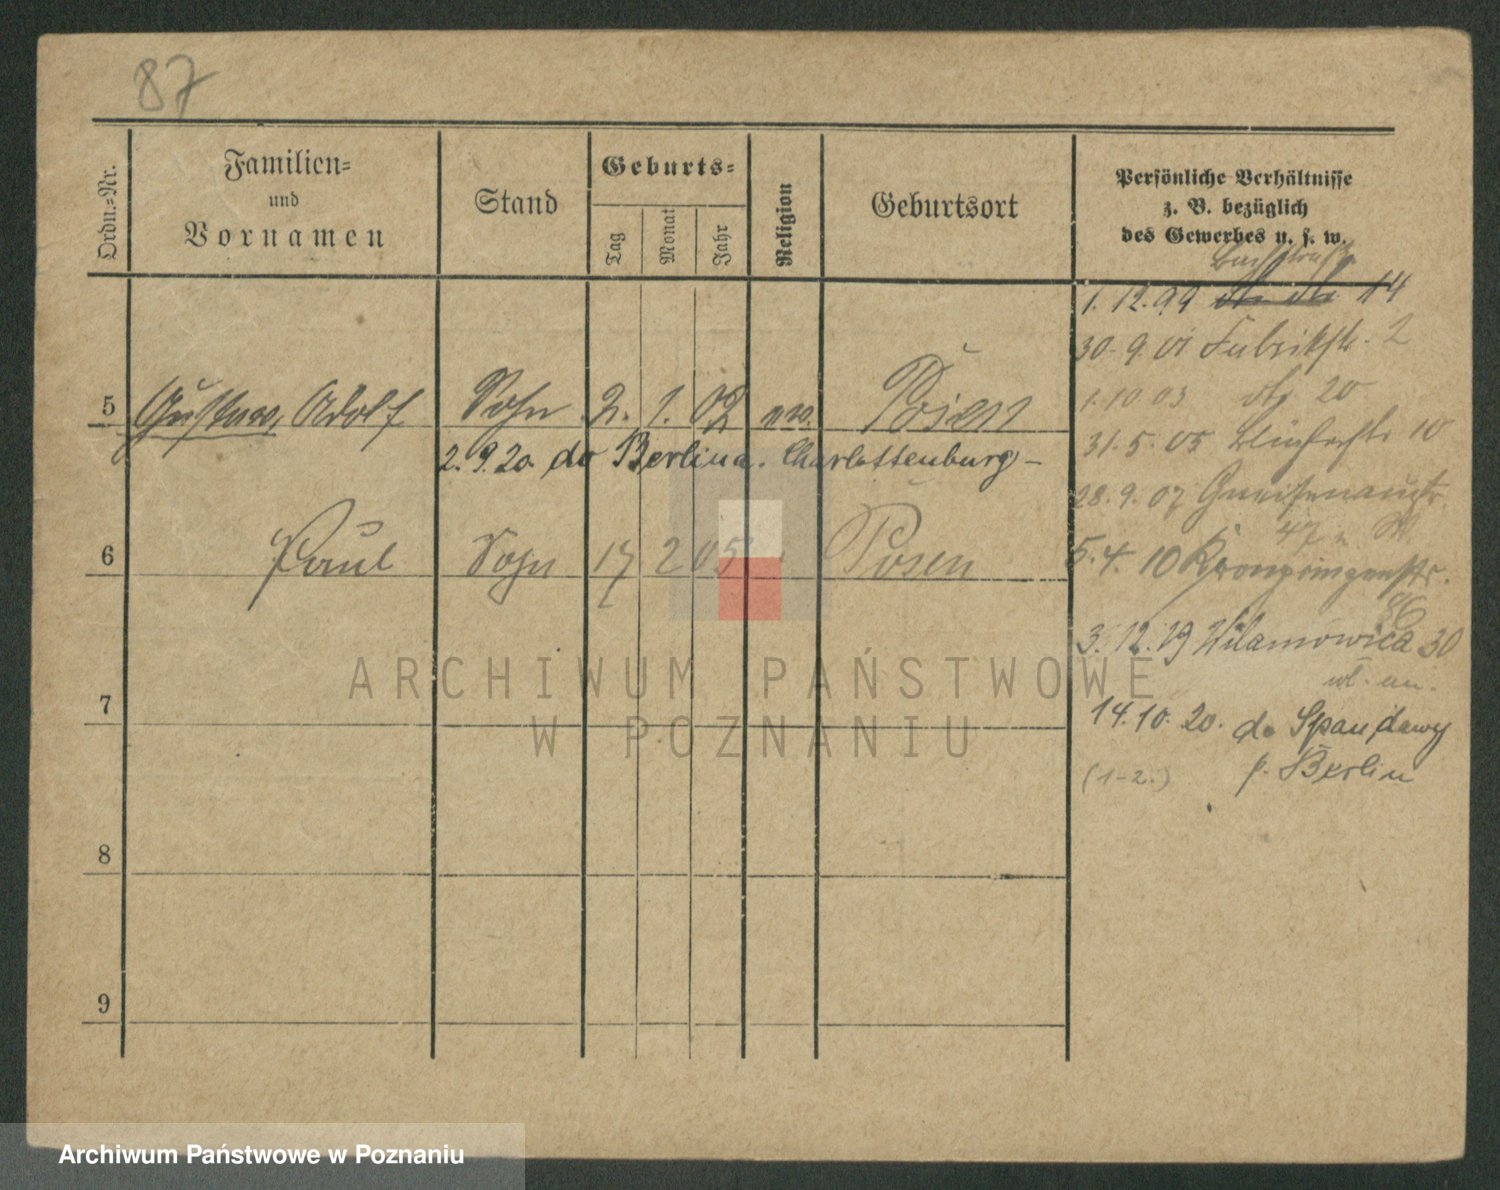 87
Ordn.=Nr.
Familien=
und
Vornamen
Stand
Geburts=
Tag
Monat
Jahr
Religion
Geburtsort
Persönliche Verhältnisse
z. B. bezüglich
des Gewerbes u. s. w.
1. 12. 99 14
30. 9. 01 Fabrikstr. 2
5 Gustav, Adolf Sohn 2. 1. 02 Posen
1. 10 03 20
31. 5. 05 10
2. 9. 20 do Berlina. Charlottenburg -
28. 9. 07 Gneisenaustr.
6 Paul Sohn 17 2 05 Posen
5. 4. 10 Kronprinzenstr.
86
3. 12. 19 Wilamowica 30
7
14. 10. 20. do Spandawy
(1-2.) p. Berlin
8
9
ARCHIWUM PAŃSTWOWE
W POZNANIU
Archiwum Państwowe w Poznaniu